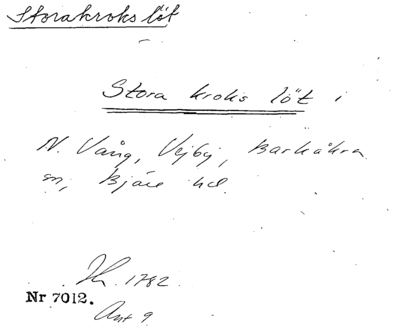 Storakroks löt
Stora kroks löt i
N. Vång, Vejby, Barkåkra
sn, Bjäre hd.
1782.
Nr 7012.
Akt 9